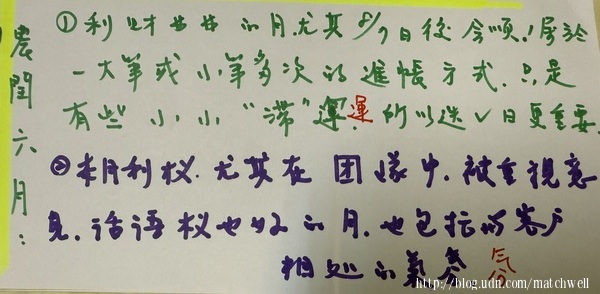 農閏六月：
①利財也好的月.尤其8/7日後会順!屬於
一大筆或小筆多次的進帳方式.只是
有些小小“滯”運運.所以选ˇ日更重要.
②本月利权.尤其在团隊中.被重視意
見.话语权也好的月.也包括所客户
相处的氣氛 气份
http://blog.udn.com/matchwell